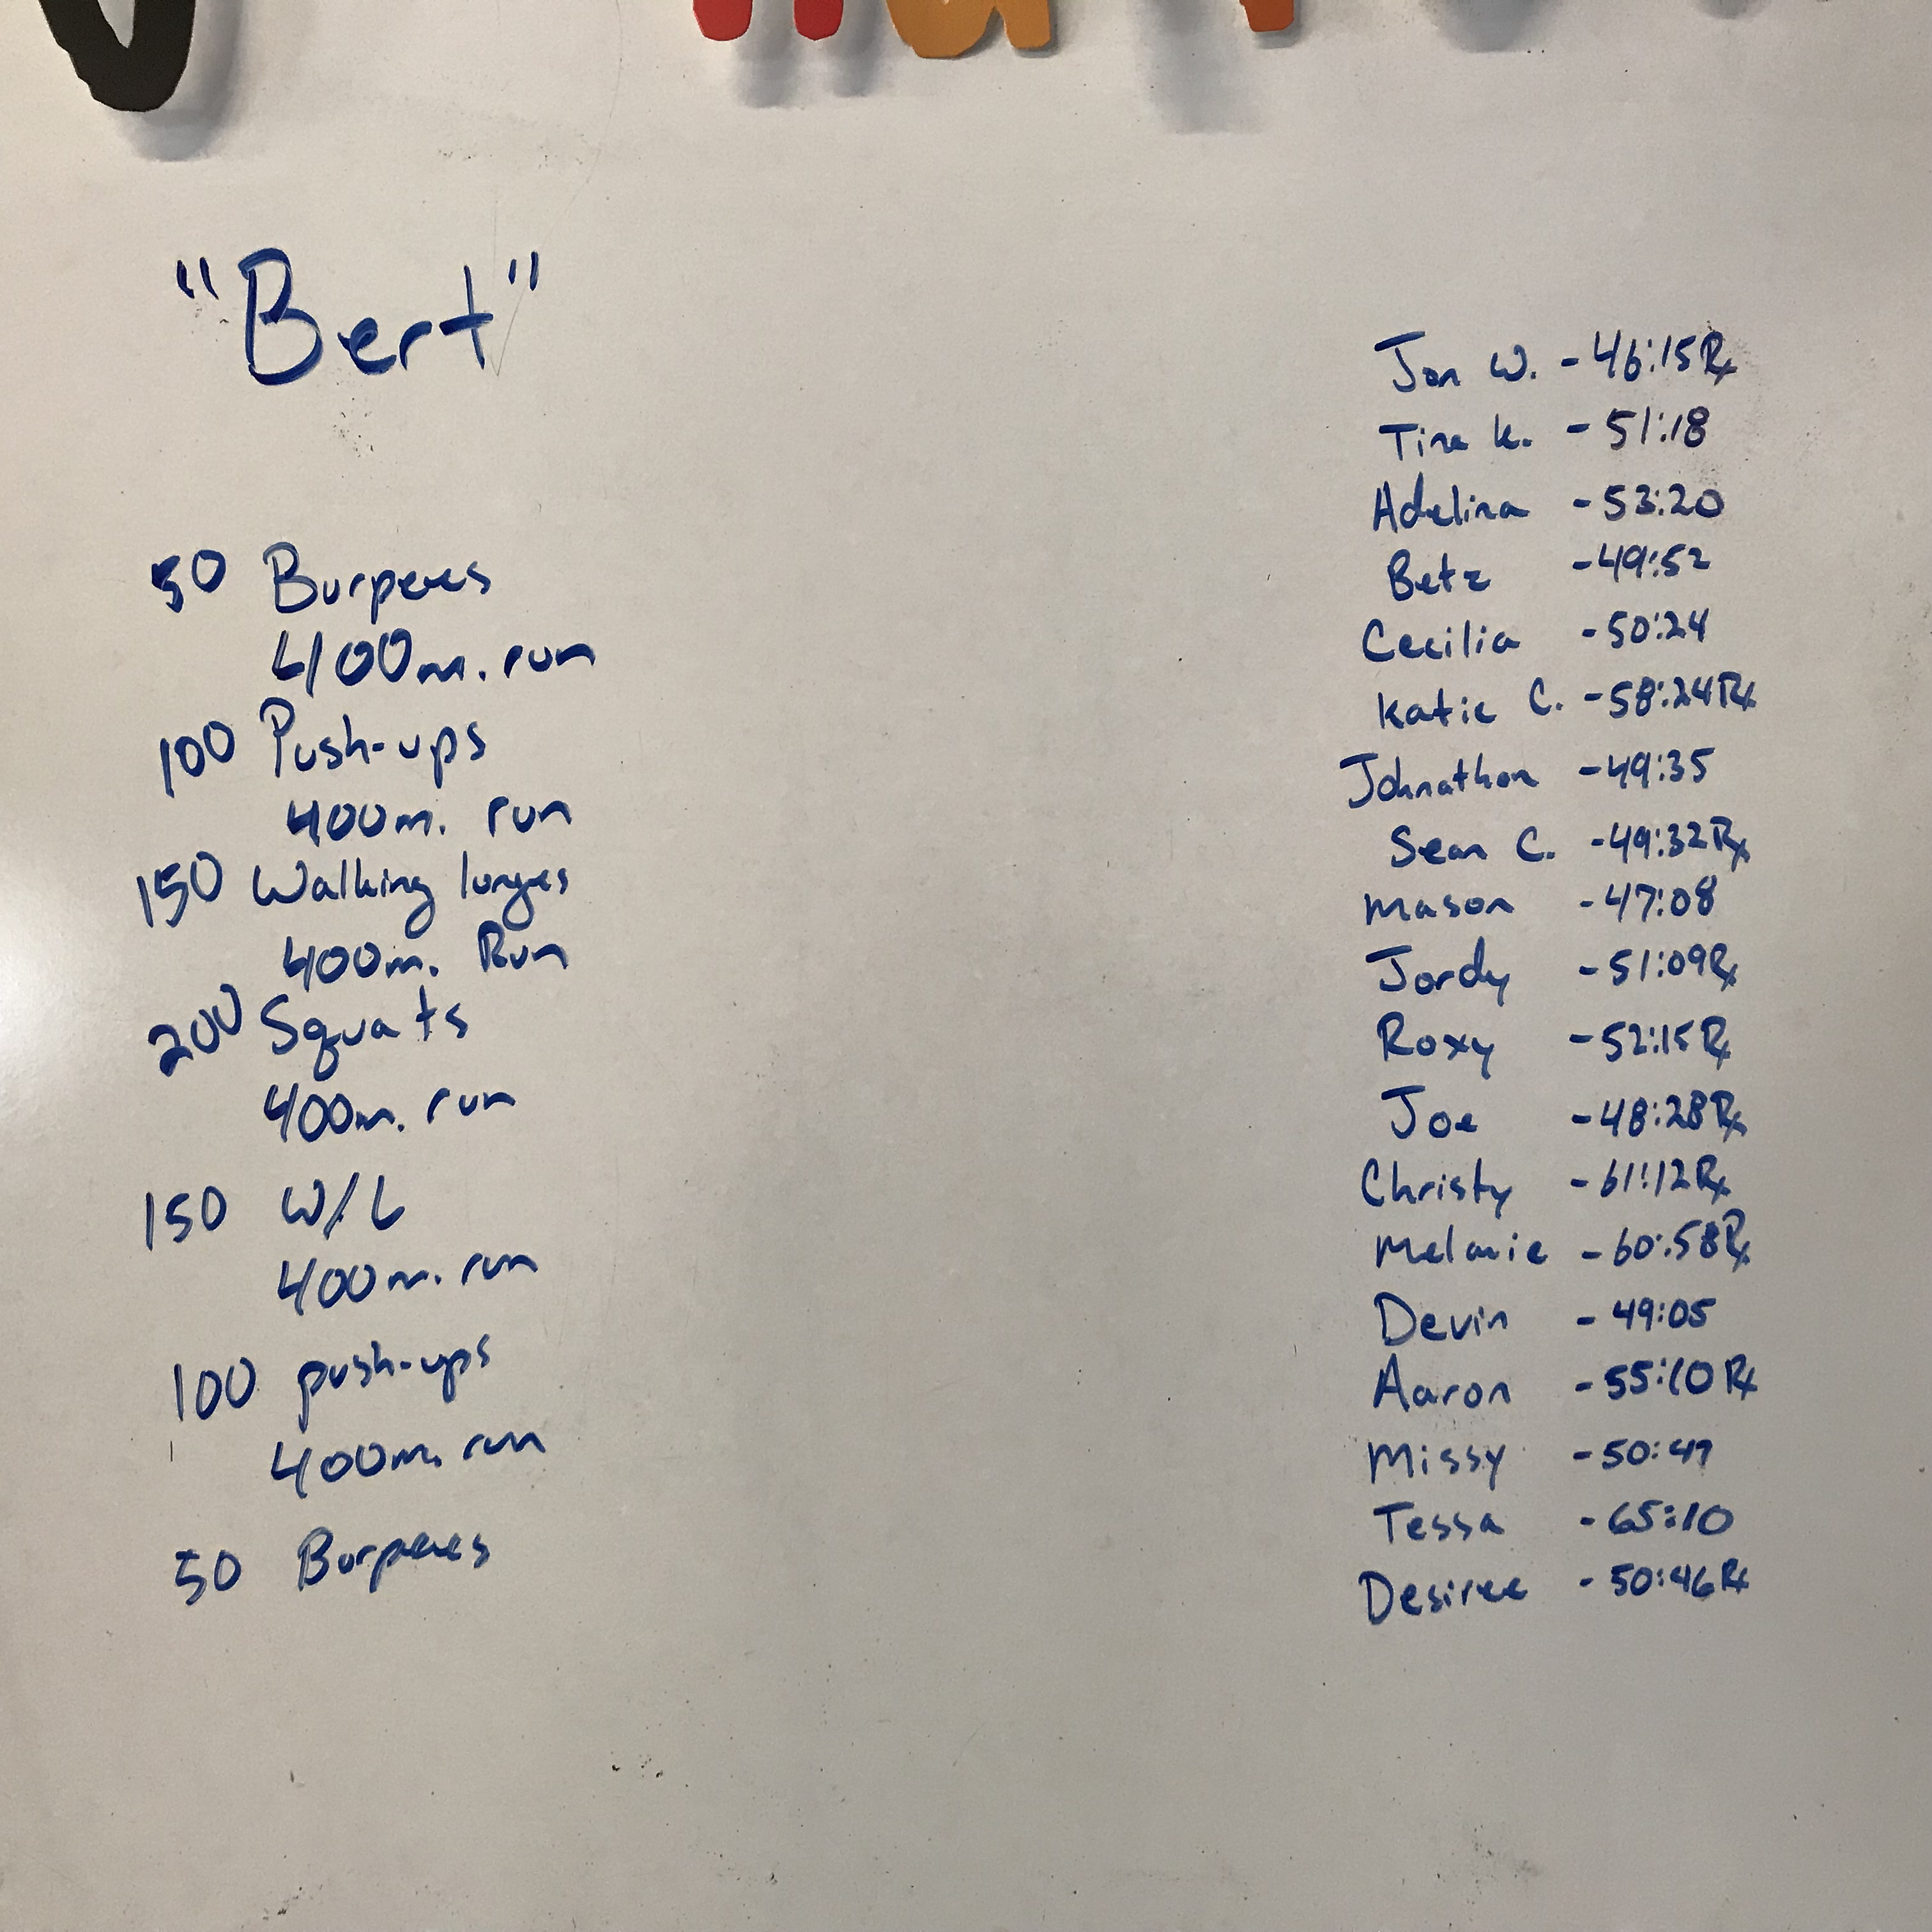 "Bert"
50 Burpees
400m. run
100 Push-ups
400m. run
150 Walking lunges
400m. Run
200 Squats
400m. run
150 W/L
400m. run
100 push-ups
400m. run
50 Burpees
Jon W. - 46:15 Rx
Tina K. - 51:18
Adelina - 53:20
Betz - 49:52
Cecilia - 50:24
Katie C. - 58:24 Rx
Johnathon - 49:35
Sean C. - 49:32 Rx
Mason - 47:08
Jordy - 51:09 Rx
Roxy - 52:15 Rx
Joe - 48:28 Rx
Christy - 61:12 Rx
Melanie - 60:58 Rx
Devin - 49:05
Aaron - 55:10 Rx
Missy - 50:47
Tessa - 65:10
Desiree - 50:46 Rx